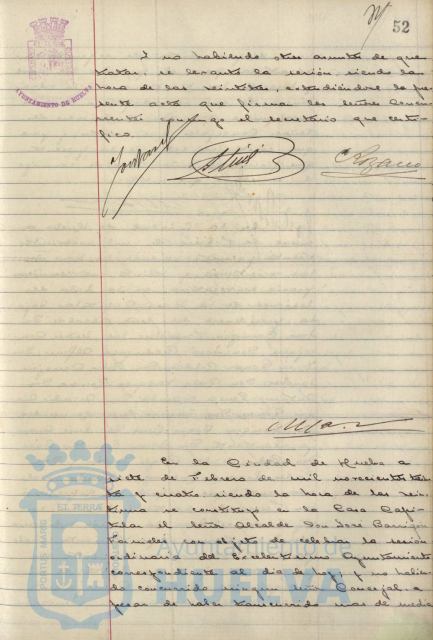 52
AYUNTAMIENTO DE HUELVA
Y no habiendo otros asuntos de que
tratar, se levantó la sesión, siendo la
hora de las veintitres, extendiéndose la pre
sente acta que firman los señores concu
rrentes conmigo el secretario que certi-
fico.
C Lozano
En la Ciudad de Huelva a
siete de Febrero de mil novecientos trein
ta y cuatro, siendo la hora de las vein
tiuna se constituyó en la Casa Capi-
tular el Señor Alcalde Don José Barrigón
Fornieles con objeto de celebrar la sesión
ordinaria del Excelentísimo Ayuntamiento
correspondiente al día de hoy, y no habien
do concurrido ningun Señor Concejal a
pesar de haber transcurrido mas de media
Ayuntamiento de
HUELVA
PORTUS MARIS
ET TERRA